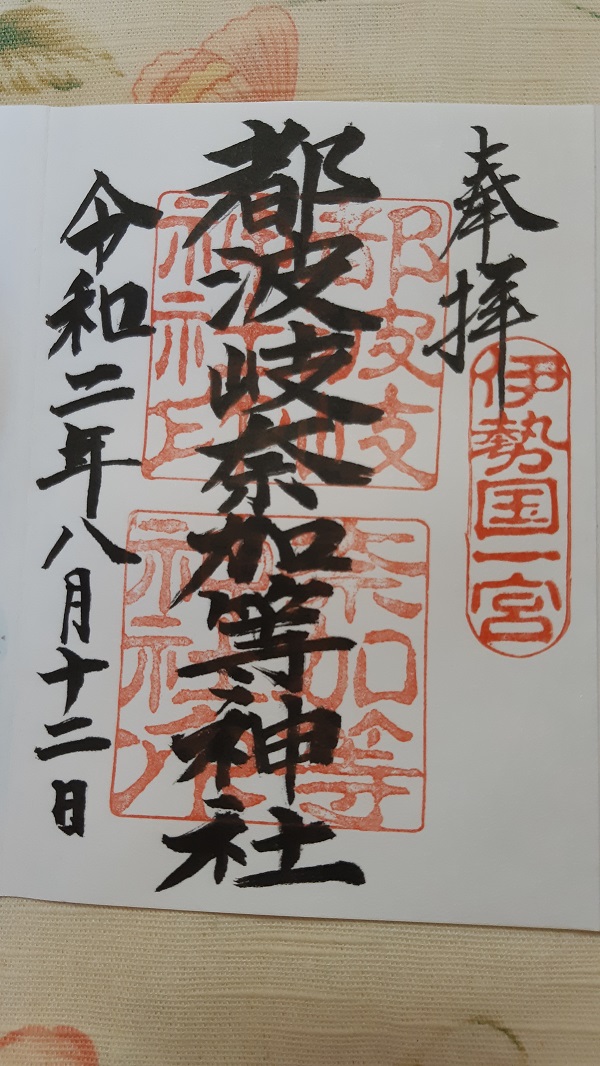 奉拝
伊勢国一宮
都波岐奈加等神社
都波岐
神社印
奈加等
神社
令和二年八月十二日